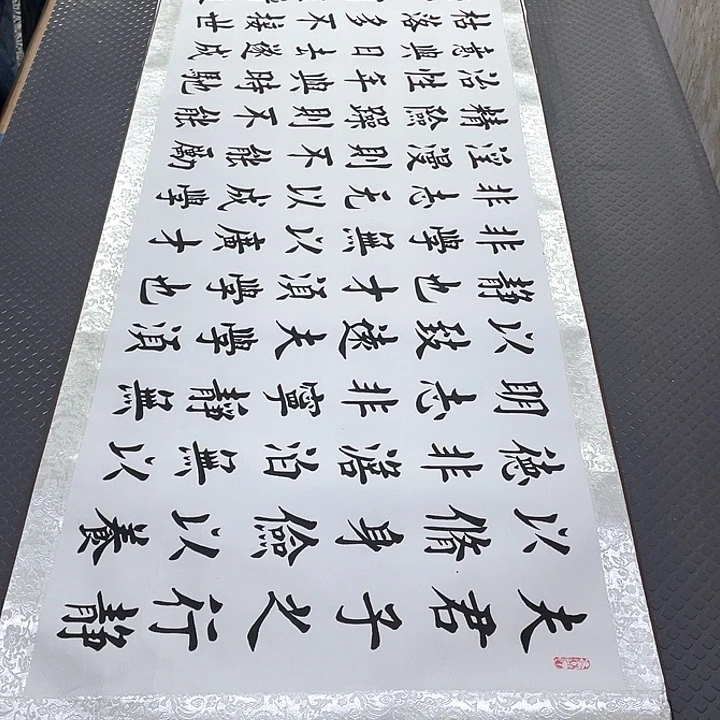 夫君子之行靜
以脩身儉以養
德非澹泊無以
明志非寧靜無
以致遠夫學須
靜也才須學也
非學無以廣才
非志无以成學
淫漫則不能勵
精險躁則不能
治性年與時馳
意與日去遂成
枯落多不接世